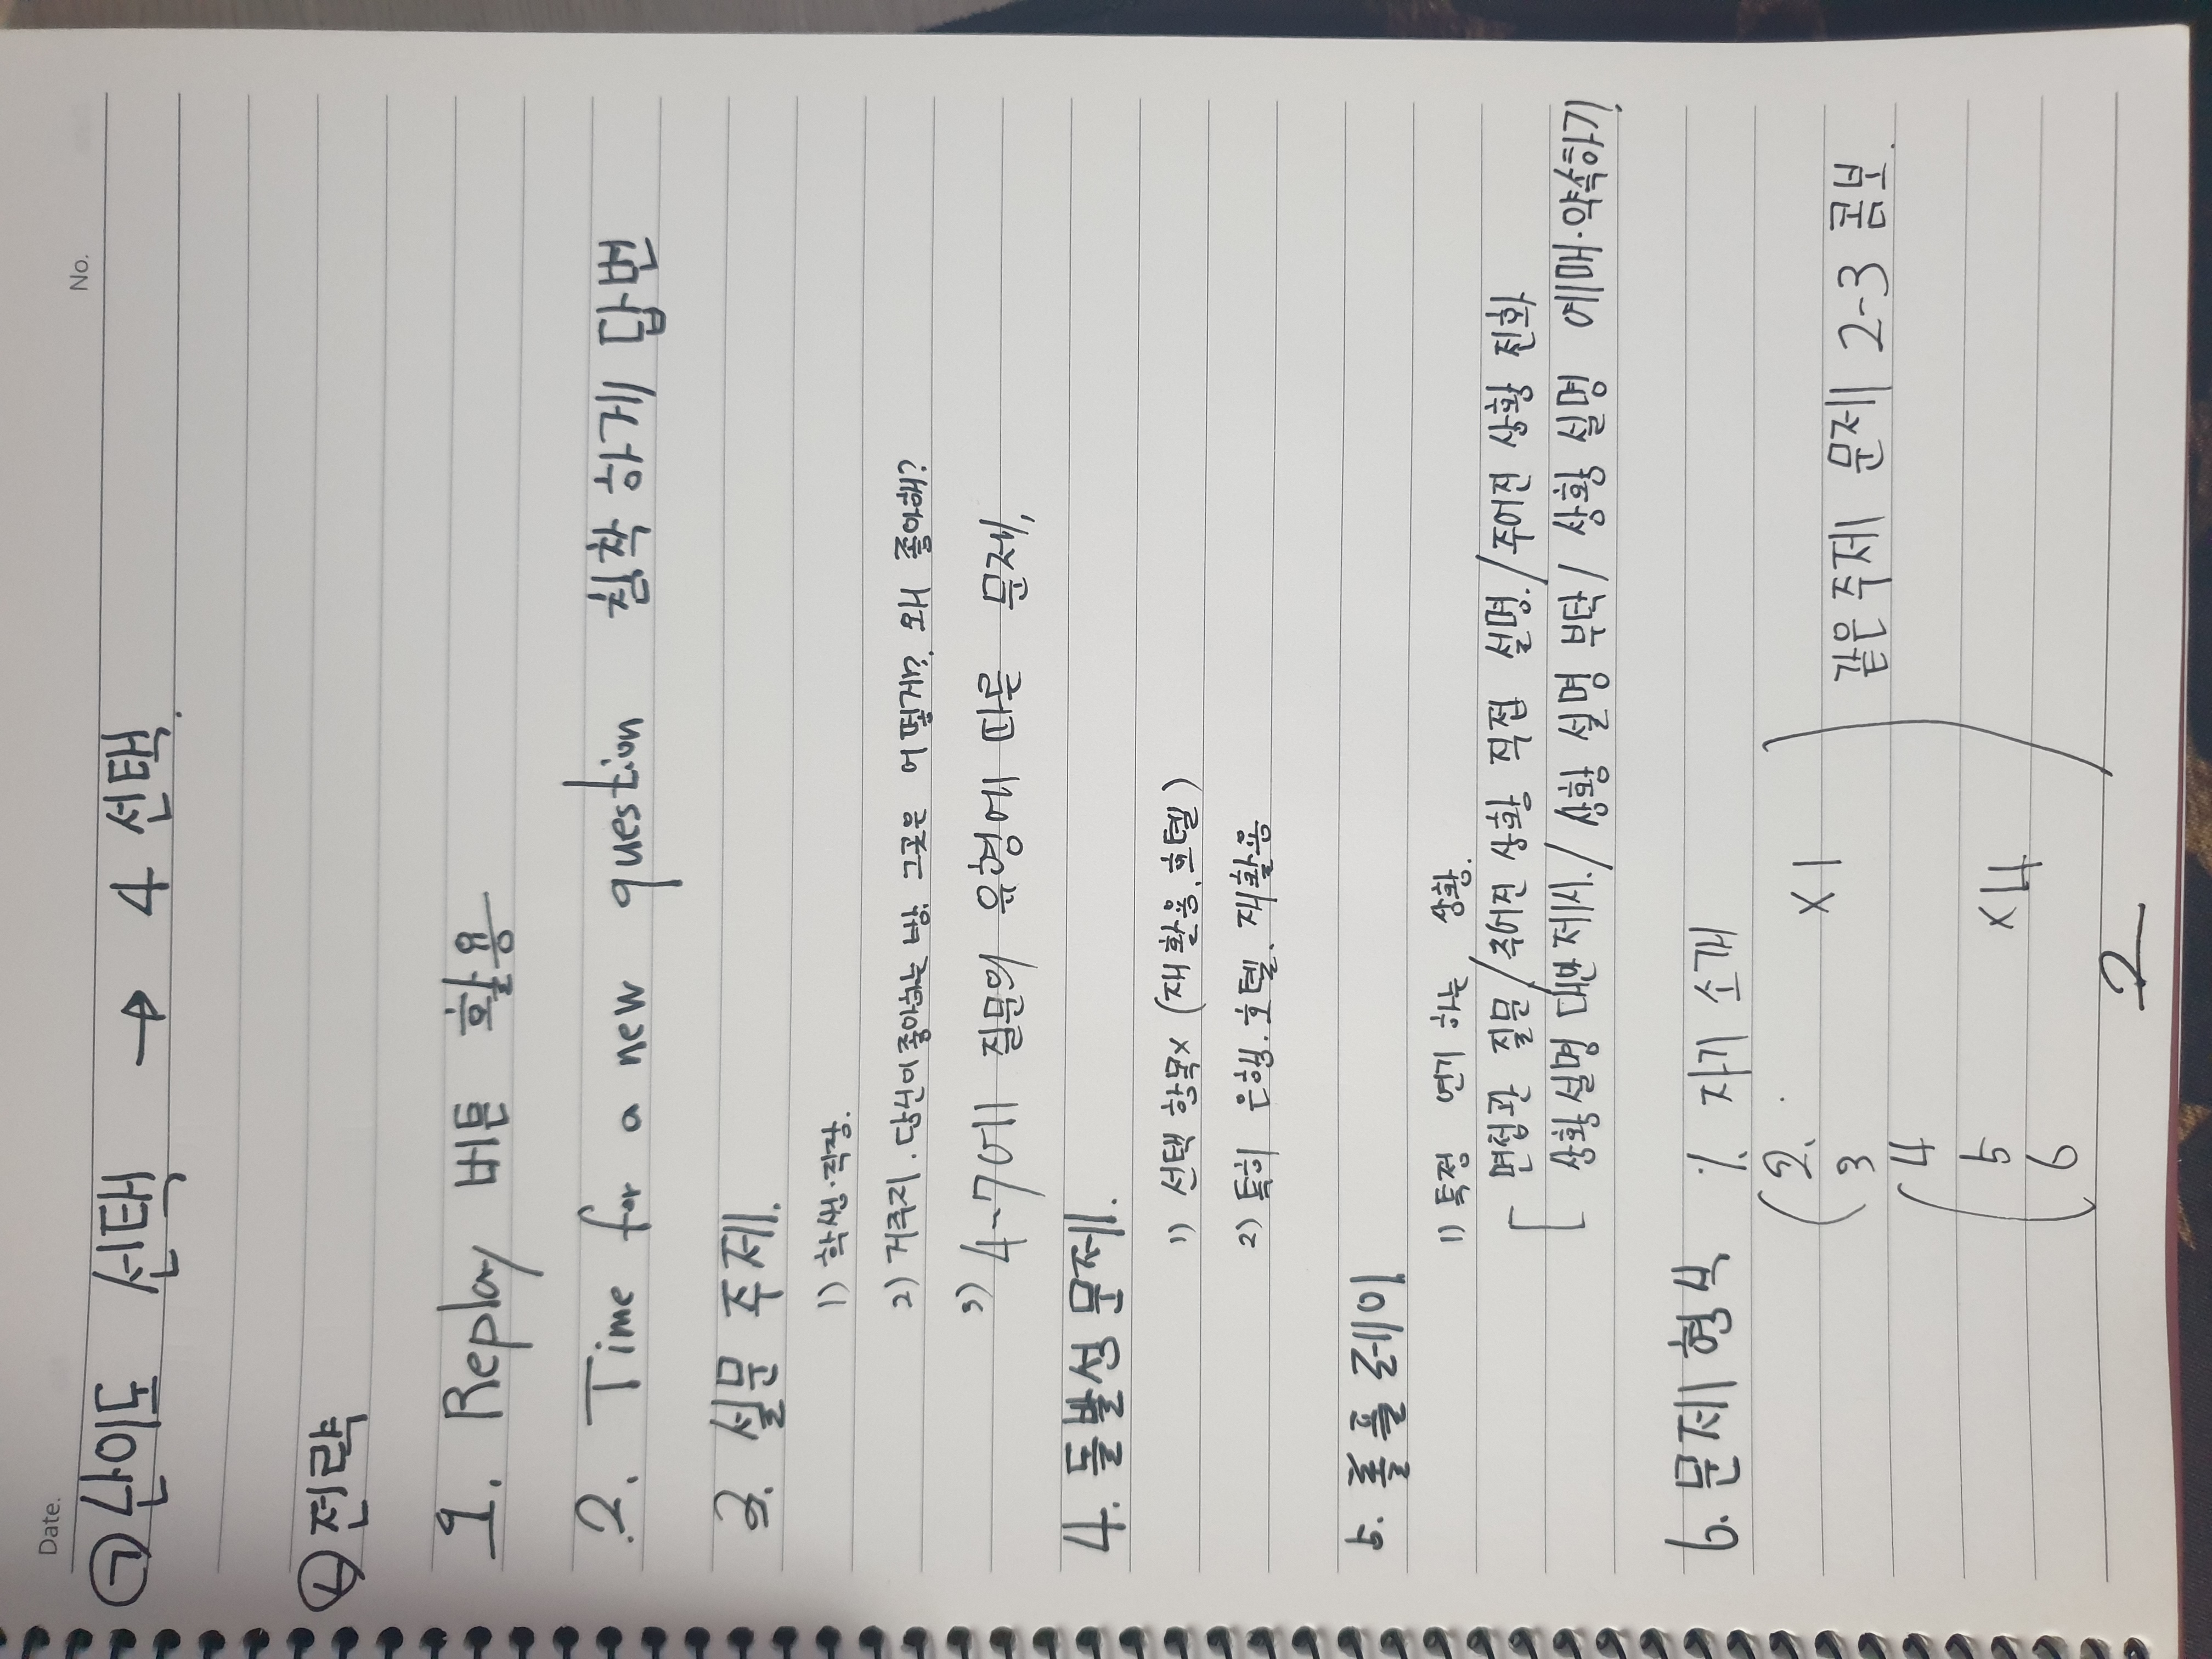 Date.
No.
㉠ 난이도 선택 → 4 선택.
㉡ 전략
1. Replay 버튼 활용
2. Time for a new question 침착하게 답변
3. 설문 주제.
1) 학생·직장.
2) 거주지. 당신이 좋아하는 방. 그곳은 어떻게? 왜 좋아해?
3) 4-7에 질문의 유형에 따른 문제,
4. 돌발성 문제.
1) 선택 항목x (재활용, 호텔)
2) 특히 은행. 호텔. 재활용
5. 롤플레이
1) 특정 연기 하는 상황.
면접관 질문/주어진 상황 직접 설명./주어진 상황 전화
상황 설명 대안 제시./상황 설명 부탁/상황 설명 예매·약속하기
6. 문제 형식 1. 자기 소개
2.
x1
3
같은 주제 문제 2-3 콤보.
4
5
x4
6
2